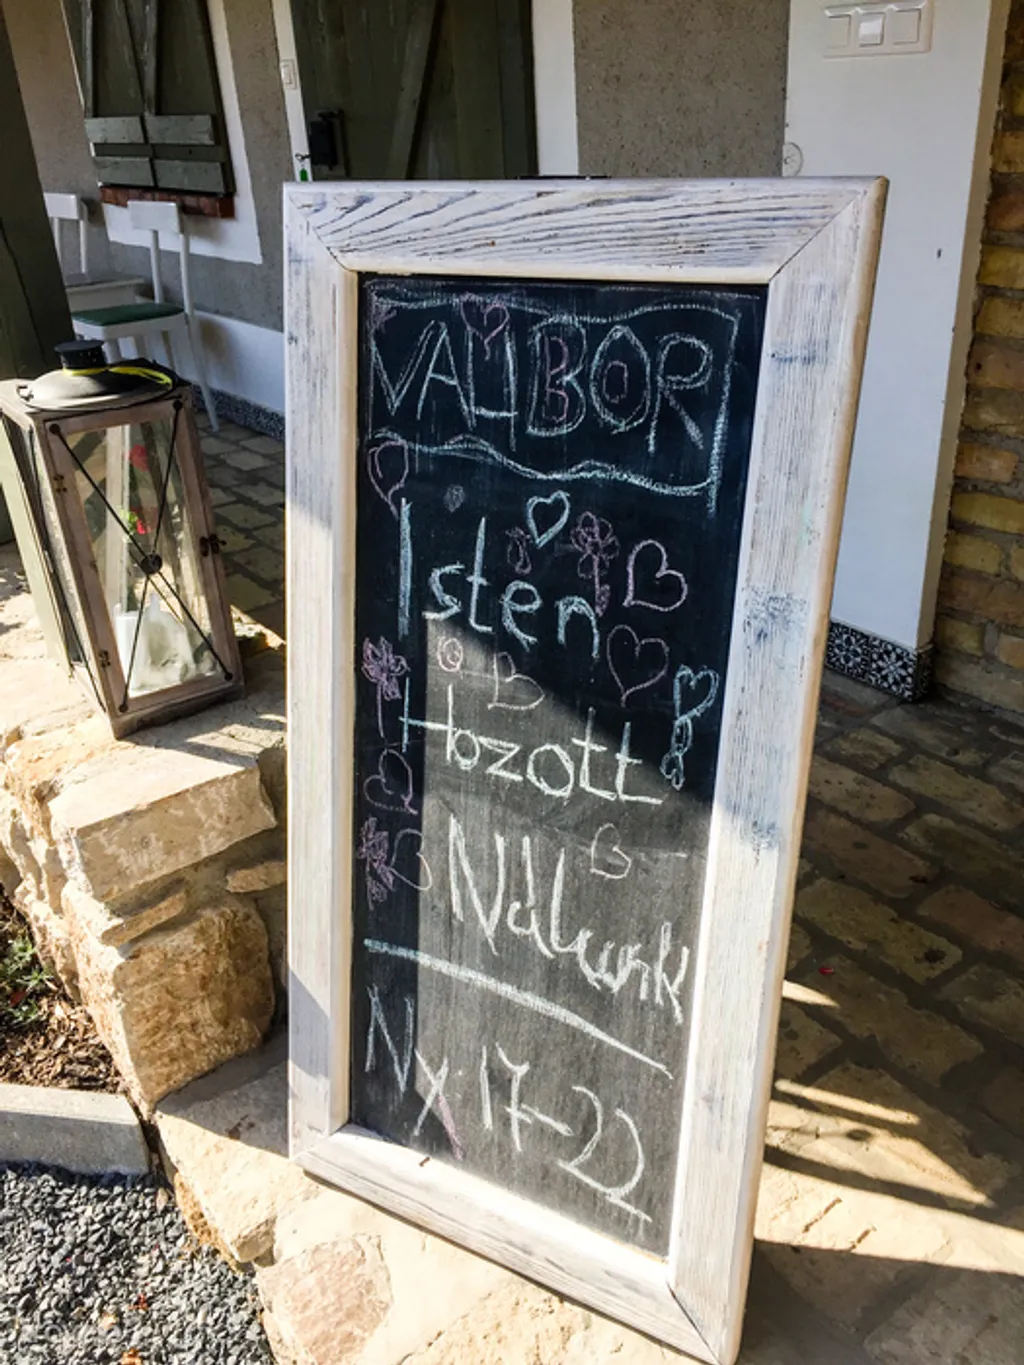 VALIBOR
Isten
Hozott
Nálunk
Ny 17-22